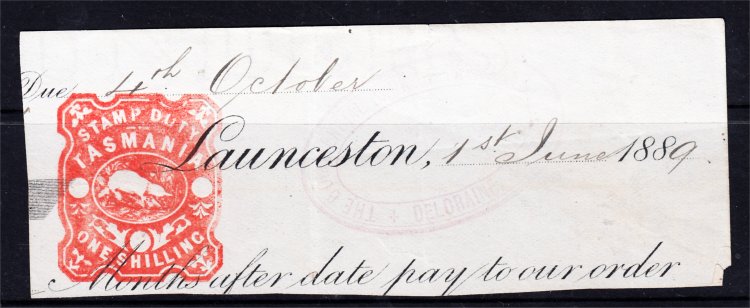 Due 4th October
STAMP DUTY
TASMANIA
ONE SHILLING
Launceston, 1st June 1889
Months after date pay to our order